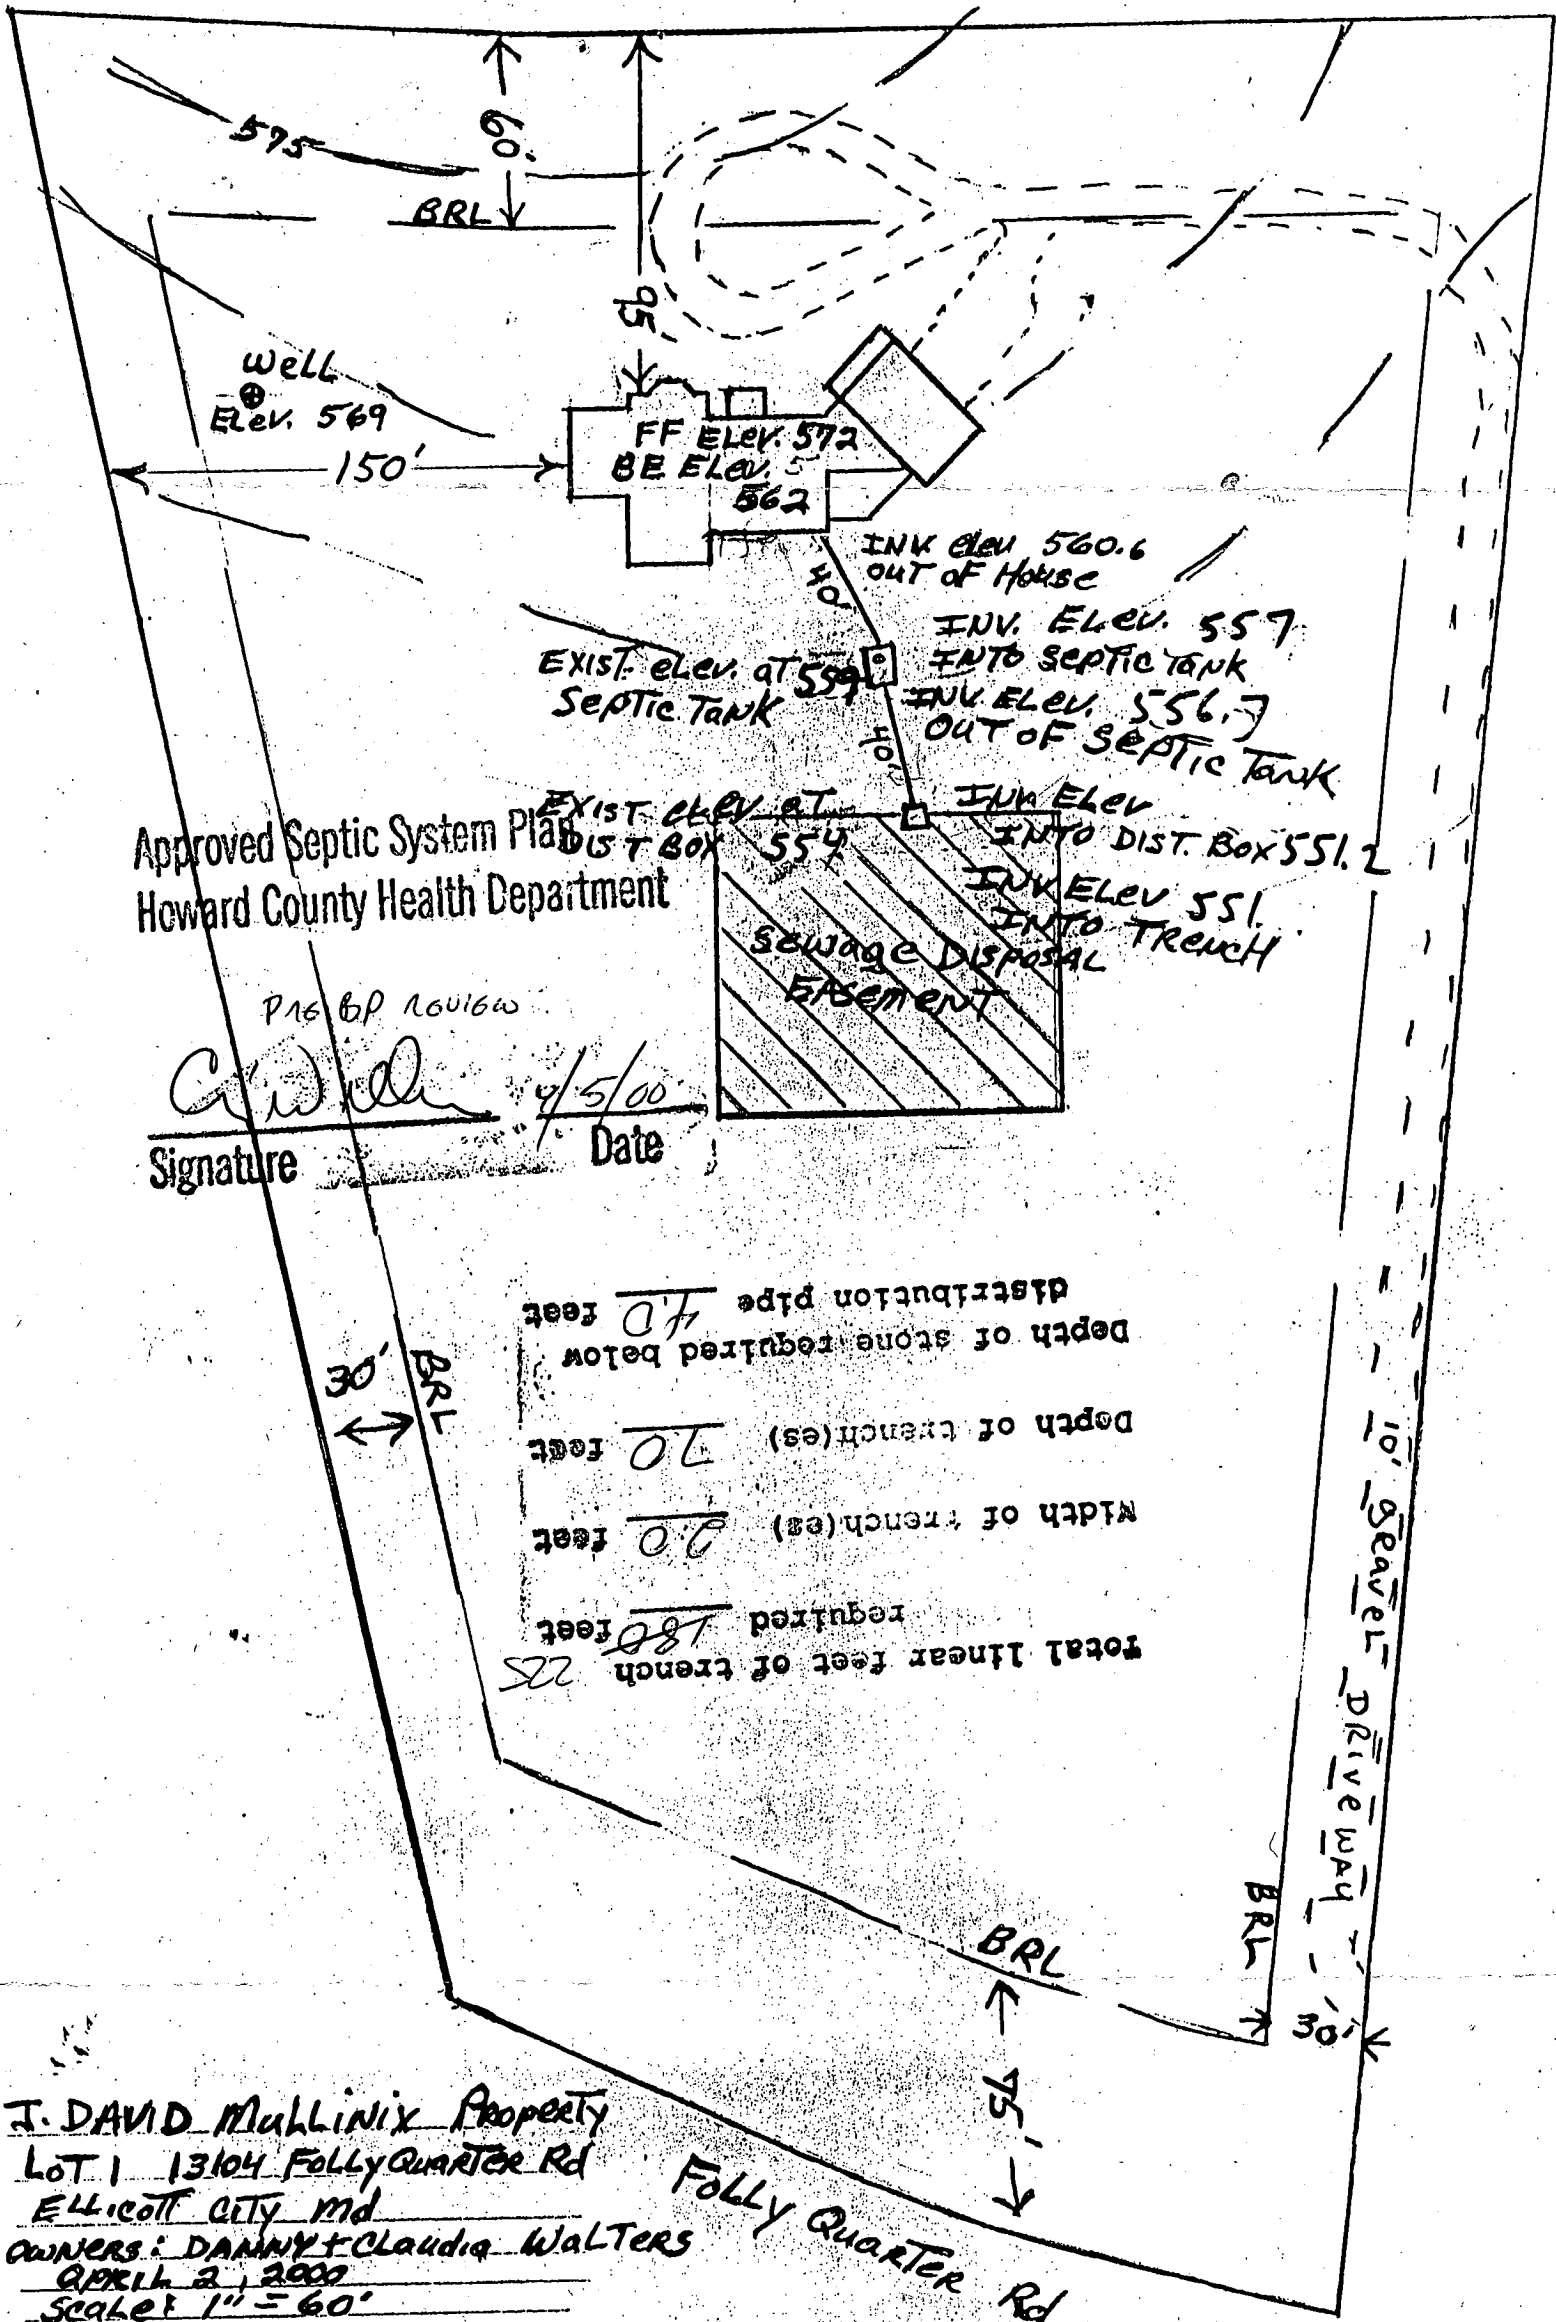 60'
575
BRL
95'
Well
Elev. 569
150'
FF Elev. 572
BE Elev.
562
INV elev 560.6
OUT OF House
40'
INV. Elev. 557
INTO Septic Tank
EXIST. elev. at 559
Septic Tank
INV. Elev. 556.7
OUT OF Septic Tank
40'
EXIST elev at
DIST BOX 554
INV. Elev
INTO DIST. Box 551.2
INV Elev 551.
INTO TRENCH
Approved Septic System Plan
Howard County Health Department
Sewage Disposal
Easement
Pre BP review
4/5/00
Signature
Date
30'
BRL
Total linear feet of trench 225
required 180 feet
Width of trench(es) 2.0 feet
Depth of trench(es) 7.0 feet
Depth of stone required below
distribution pipe 4.0 feet
10' Gravel Driveway
BRL
BRL
30'
75'
Folly Quarter Rd
J. DAVID Mullinix Property
LOT 1 13104 Folly Quarter Rd
Ellicott City Md
OWNERS: DANNY + Claudia Walters
April 2, 2000
Scale: 1" = 60'